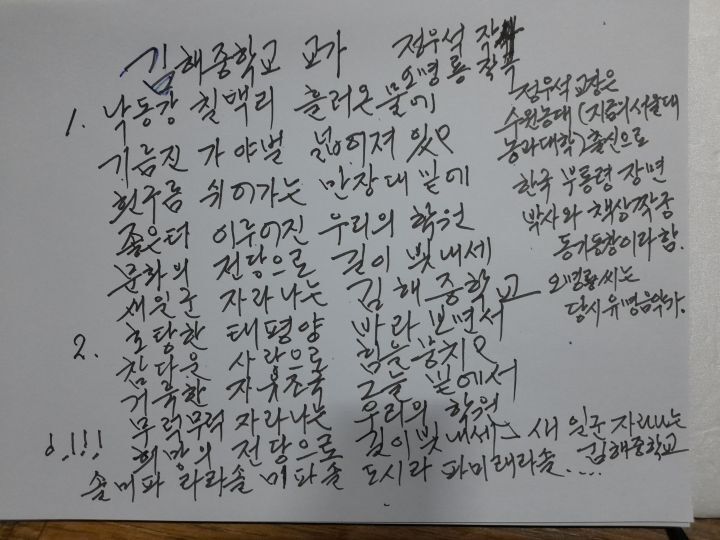 김해중학교 교가 정우석 작사
오명룡 작곡
1. 낙동강 칠백리 흘러온 물에
기름진 가야벌 넓어져 있오
흰구름 쉬어가는 만장대 밑에
좋은터 이루어진 우리의 학원
문화의 전당으로 길이 빛내세
새일군 자라나는 김해중학교
2. 호탕한 태평양 바라보면서
참다운 사랑으로 힘을 뭉치오
거룩한 자유조국 그늘 밑에서
무럭무럭 자라나는 우리의 학원
희망의 전당으로 길이빛내세 새 일군 자라나는
김해중학교
솔미파 라라솔 미파솔 도시라 파미래라솔....
정우석 교장은
수원농대 (지금의 서울대
농과대학) 출신으로
한국 부통령 장면
박사와 책상짝궁
동기동창이라 함.
오명룡씨는
당시 유명음악가.